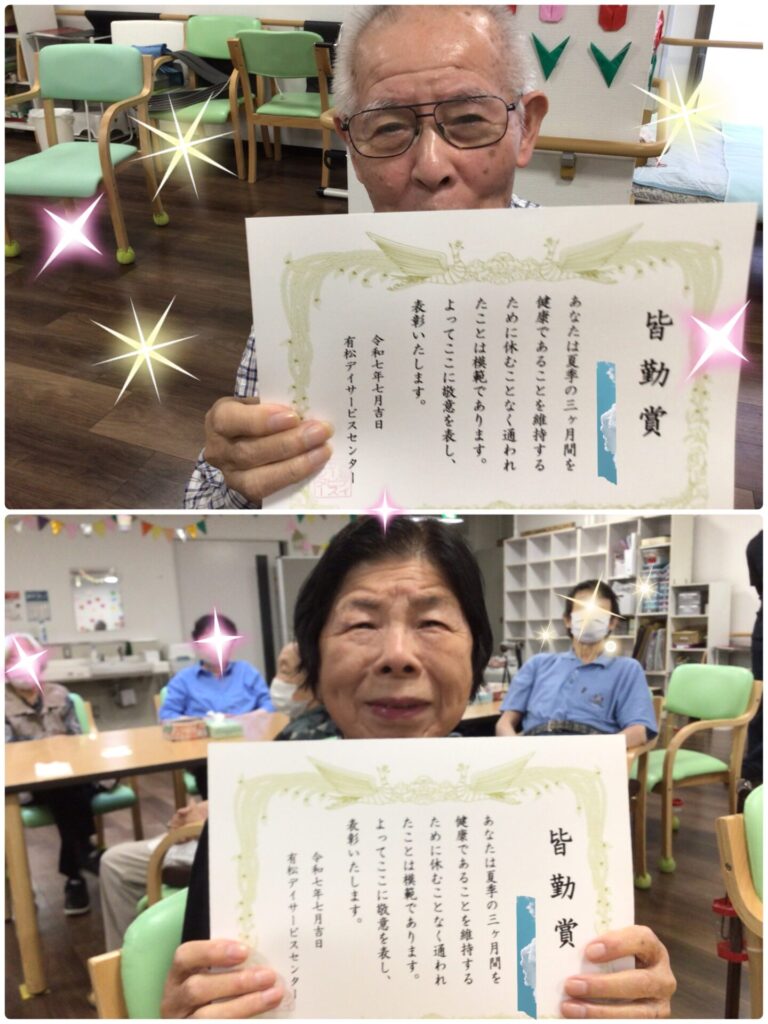 皆勤賞
あなたは夏季の三ヶ月間を
健康であることを維持する
ために休むことなく通われ
たことは模範であります。
よってここに敬意を表し、
表彰いたします。
令和七年七月吉日
有松デイサービスセンター
皆勤賞
あなたは夏季の三ヶ月間を
健康であることを維持する
ために休むことなく通われ
たことは模範であります。
よってここに敬意を表し、
表彰いたします。
令和七年七月吉日
有松デイサービスセンター